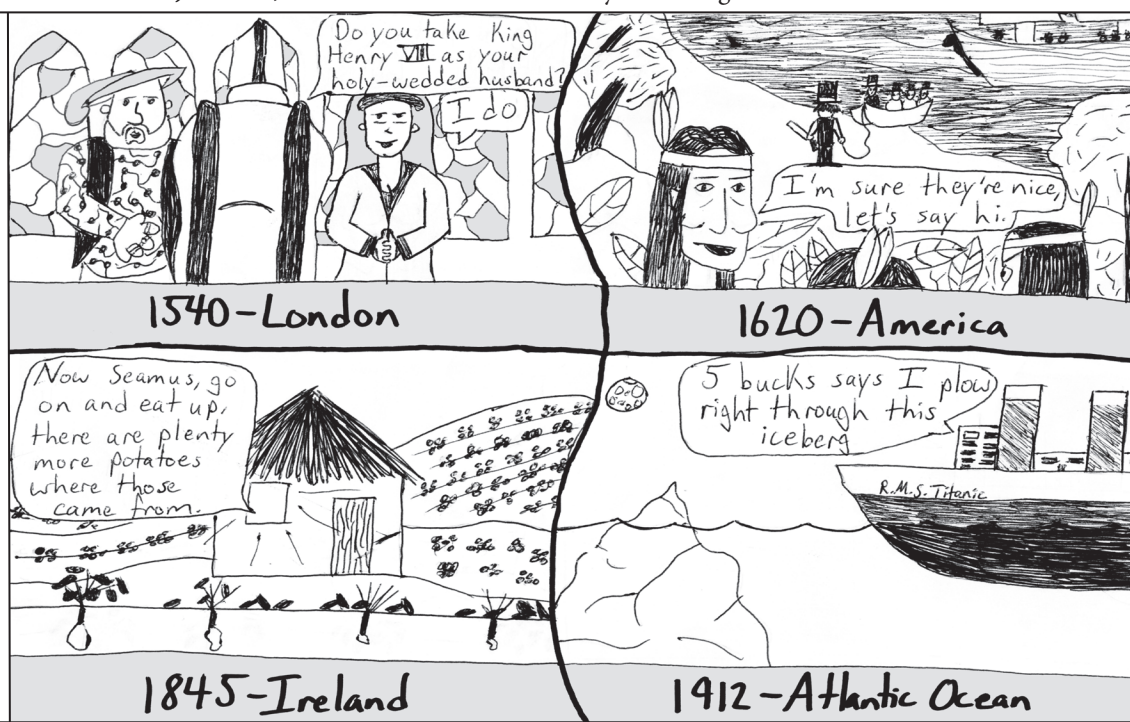 Do you take King
Henry VIII as your
holy-wedded husband?
I do
1540-London
I'm sure they're nice,
let's say hi.
1620-America
Now Seamus, go
on and eat up,
there are plenty
more potatoes
where those
came from.
1845-Ireland
5 bucks says I plow
right through this
iceberg
R.M.S. Titanic
1912-Atlantic Ocean